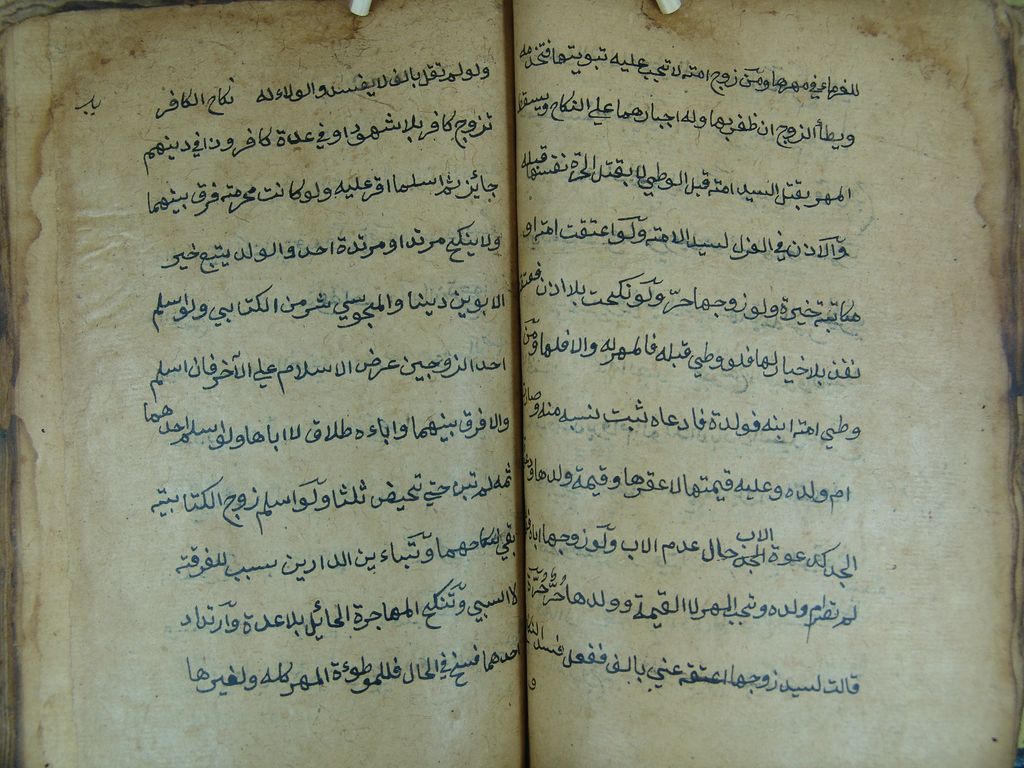 للغرماء في مهرها ومن زوج امته لا تجب عليه تبويتها فتخدمه
ويطأ الزوج ان ظفر بها وله اجبارهما على النكاح ويسقط
المهر بقتل السيد امته قبل الوطي لا بقتل الحرة نفسها قبله
والاذن في العزل لسيد الامة ولو اعتقت امة او
مكاتبة خيرت ولو زوجها حر ولو نكحت بلا اذن فعتقت
نفذ بلا خيار لها فلو وطي قبله فالمهر له والا فلها ومن
وطي امة ابنه فولدت فادعاه ثبت نسبه منه وصارت
ام ولده وعليه قيمتها لا عقرها وقيمة ولدها و
الجد كدعوة الاب حال عدم الاب ولو زوجها اباه
لم تصر ام ولده وتجب المهر لا القيمة وولدها حر حرة
قالت لسيد زوجها اعتقه عني بالف ففعل فسد النكاح
ولو لم تقل بالف لا يفسد والولاء له نكاح الكافر باب
تزوج كافر بلا شهود او في عدة كافر وذا في دينهم
جائز ثم اسلما اقر عليه ولو كانت محرمته فرق بينهما
ولا ينكح مرتد او مرتدة احد والولد يتبع خير
الابوين دينا والمجوسي شر من الكتابي ولو اسلم
احد الزوجين عرض الاسلام على الآخر فان اسلم
والا فرق بينهما واباءه طلاق لا اباها ولو اسلم احدهما
ثمه لم تبن حتى تحيض ثلثا ولو اسلم زوج الكتابية
بقي نكاحهما وتباءين الدارين سبب للفرقة
لا السبي وتنكح المهاجرة الحائل بلا عدة وارتداد
احدهما فسخ في الحال فللموطوءة المهر كله ولغيرها